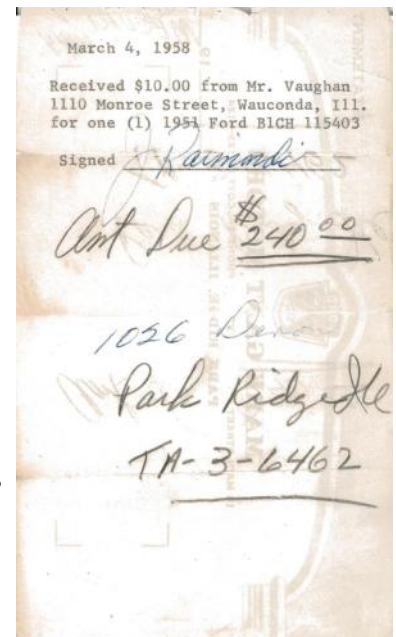 March 4, 1958
Received $10.00 from Mr. Vaughan
1110 Monroe Street, Wauconda, Ill.
for one (1) 1951 Ford B1CH 115403
Signed J Raimondi
Amt Due $240 00
1026 Devon
Park Ridge Ill
TA-3-6462